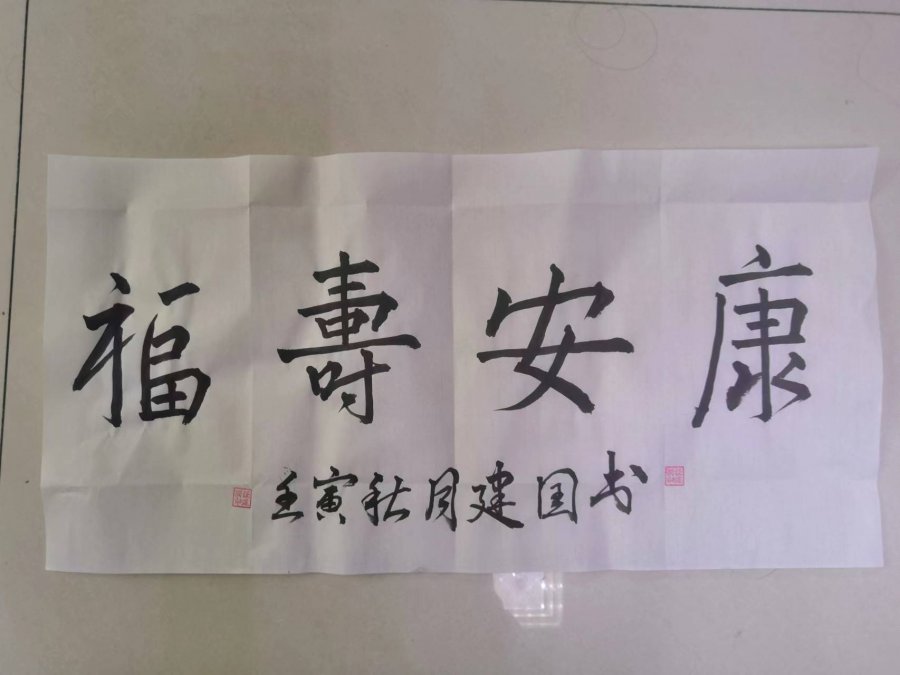 福壽安康
壬寅秋月建国书